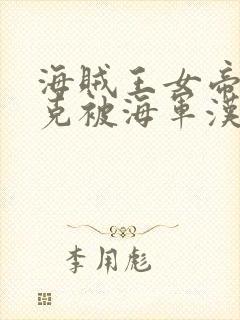 海賊王女帝
克被海軍漢
李用彪